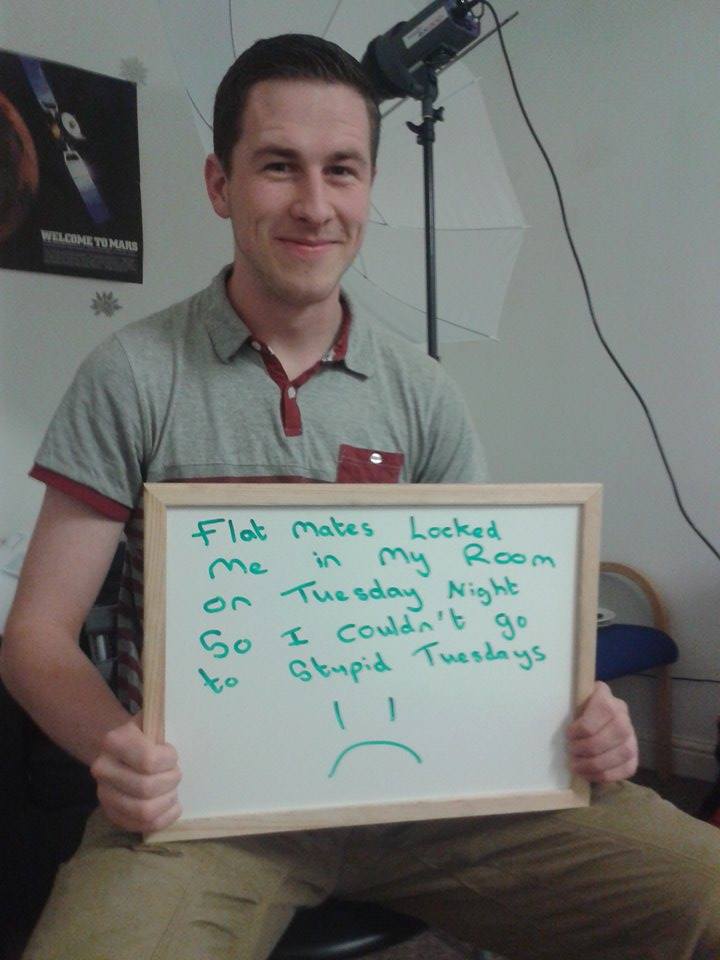 WELCOME TO MARS
Flat Mates Locked
Me in My Room
on Tuesday Night
So I Couldn't go
to Stupid Tuesdays